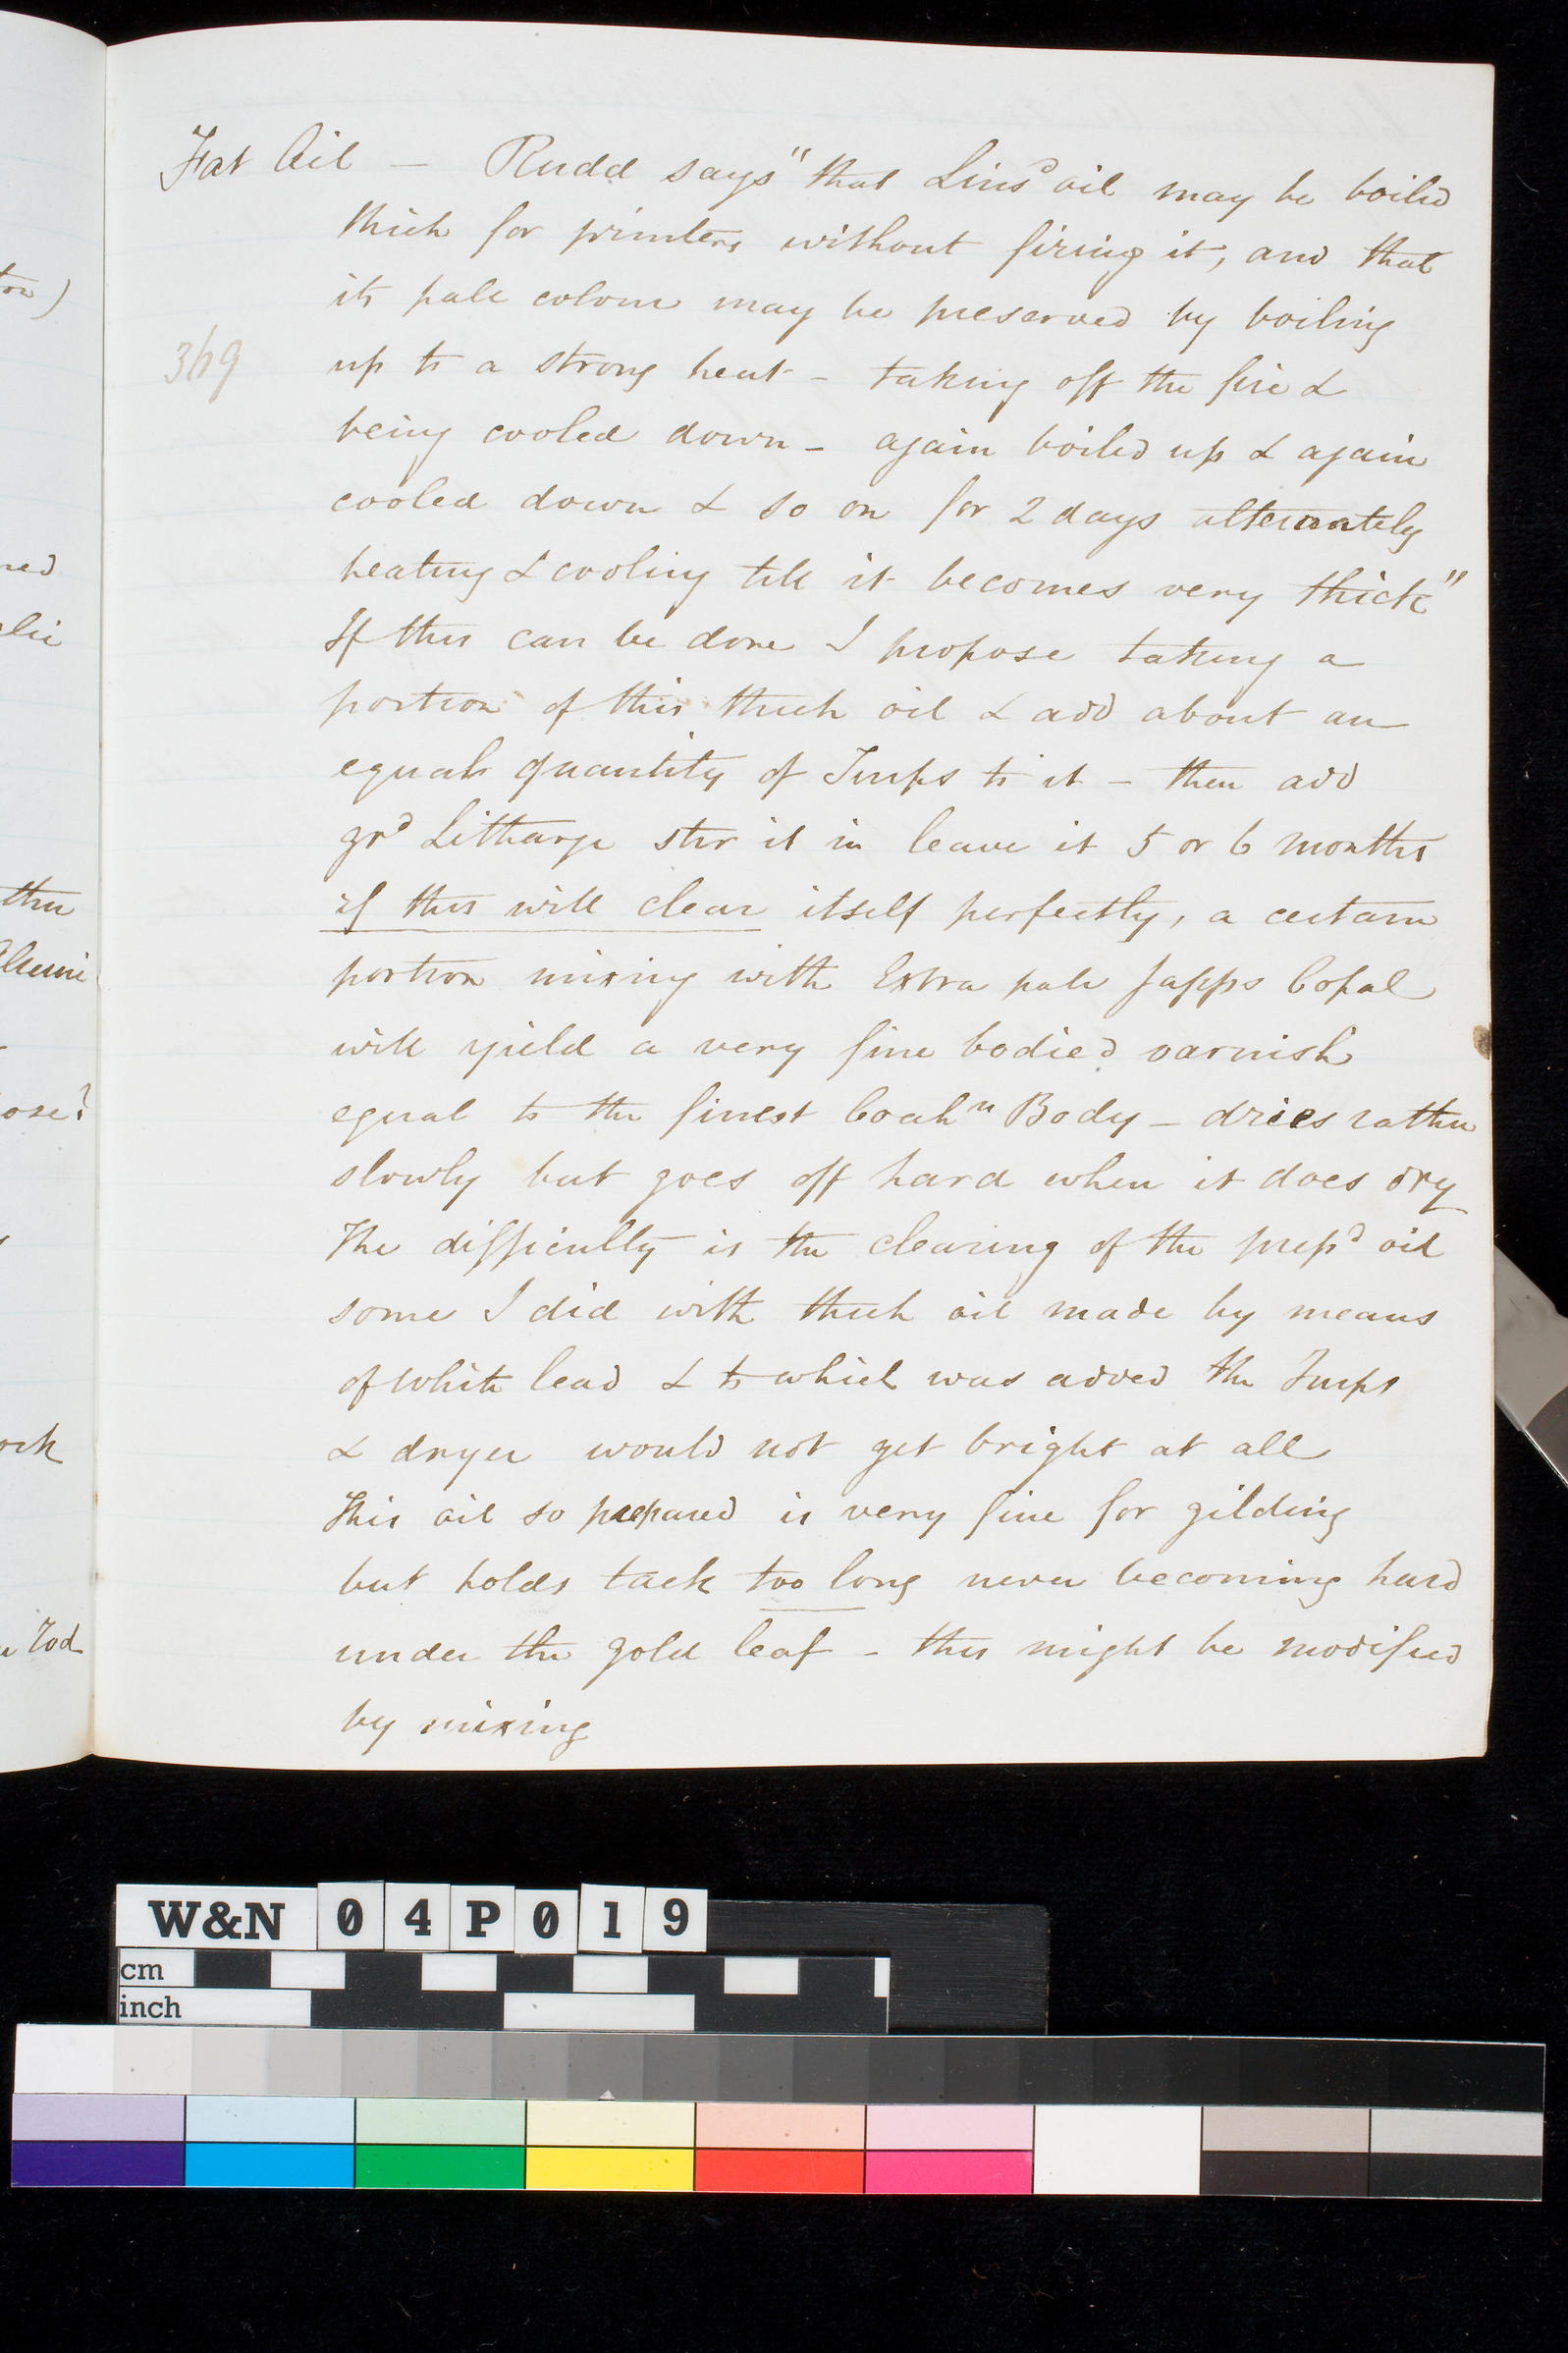 Fat Oil — Rudd says "that Lins^d oil may be boiled
thick for printers without firing it, and that
its pale colour may be preserved by boiling
369
up to a strong heat - taking off the fire &
being cooled down - again boiled up & again
cooled down & so on for 2 days alternately
heating & cooling till it becomes very thick"
If this can be done I propose taking a
portion of this thick oil & add about an
equal quantity of Turps to it - then add
gr^d Litharge stir it in leave it 5 or 6 months
if this will clear itself perfectly, a certain
portion mixing with Extra pale Japps Copal
will yield a very fine bodied varnish
equal to the finest Coah^n Body - dries rather
slowly but goes off hard when it does dry
The difficulty is the clearing of the prep^d oil
some I did with thick oil made by means
of white lead & to which was added the Turps
& dryer would not get bright at all
This oil so prepared is very fine for gilding
but holds tack too long never becoming hard
under the gold leaf - this might be modified
by mixing
ton)
ned
the
ose?
ork
Tod
W&N 04P019
cm
inch